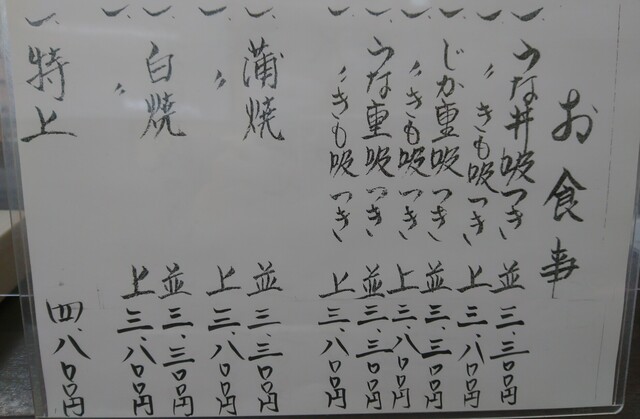 お食事
うな丼吸つき 並 三、三〇〇円
〃 きも吸つき 上 三、八〇〇円
じか重吸つき 並 三、三〇〇円
〃 きも吸つき 上 三、八〇〇円
うな重吸つき 並 三、三〇〇円
〃 きも吸つき 上 三、八〇〇円
蒲焼 並 三、三〇〇円
〃 上 三、八〇〇円
白焼 並 三、三〇〇円
〃 上 三、八〇〇円
特上 四、八〇〇円